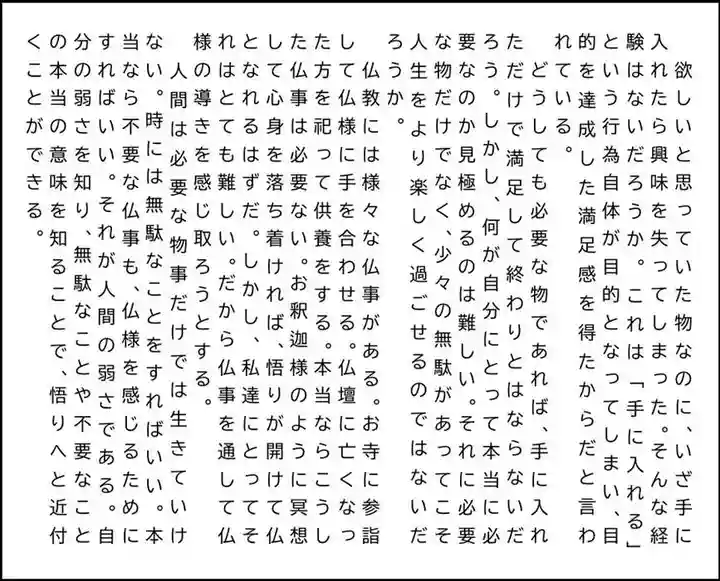 欲しいと思っていた物なのに、いざ手に
入れたら興味を失ってしまった。そんな経
験はないだろうか。これは「手に入れる」
という行為自体が目的となってしまい、目
的を達成した満足感を得たからだと言わ
れている。
　どうしても必要な物であれば、手に入れ
ただけで満足して終わりとはならないだ
ろう。しかし、何が自分にとって本当に必
要なのか見極めるのは難しい。それに必要
な物だけでなく、少々の無駄があってこそ
人生をより楽しく過ごせるのではないだ
ろうか。
　仏教には様々な仏事がある。お寺に参詣
して仏様に手を合わせる。仏壇に亡くなっ
た方を祀って供養をする。本当ならこうし
た仏事は必要ない。お釈迦様のように冥想
して心身を落ち着ければ、悟りが開けて仏
となれるはずだ。しかし、私達にとってそ
れはとても難しい。だから仏事を通して仏
様の導きを感じ取ろうとする。
　人間は必要な物事だけでは生きていけ
ない。時には無駄なことをすればいい。本
当なら不要な仏事も、仏様を感じるために
すればいい。それが人間の弱さである。自
分の弱さを知り、無駄なことや不要なこと
の本当の意味を知ることで、悟りへと近付
くことができる。